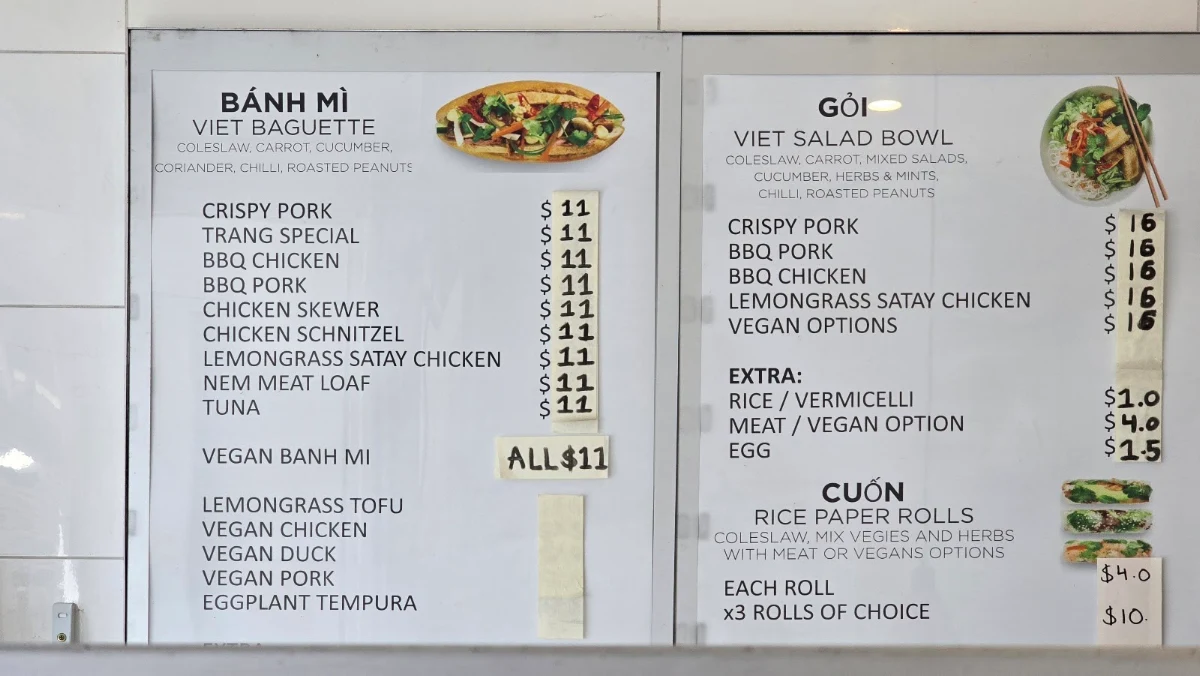 BÁNH MÌ
VIET BAGUETTE
COLESLAW, CARROT, CUCUMBER,
CORIANDER, CHILLI, ROASTED PEANUTS
CRISPY PORK $ 11
TRANG SPECIAL $ 11
BBQ CHICKEN $ 11
BBQ PORK $ 11
CHICKEN SKEWER $ 11
CHICKEN SCHNITZEL $ 11
LEMONGRASS SATAY CHICKEN $ 11
NEM MEAT LOAF $ 11
TUNA $ 11
VEGAN BANH MI ALL $11
LEMONGRASS TOFU
VEGAN CHICKEN
VEGAN DUCK
VEGAN PORK
EGGPLANT TEMPURA
GỎI
VIET SALAD BOWL
COLESLAW, CARROT, MIXED SALADS,
CUCUMBER, HERBS & MINTS,
CHILLI, ROASTED PEANUTS
CRISPY PORK $ 16
BBQ PORK $ 16
BBQ CHICKEN $ 16
LEMONGRASS SATAY CHICKEN $ 16
VEGAN OPTIONS $ 16
EXTRA:
RICE / VERMICELLI $1.0
MEAT / VEGAN OPTION $4.0
EGG $1.5
CUỐN
RICE PAPER ROLLS
COLESLAW, MIX VEGIES AND HERBS
WITH MEAT OR VEGANS OPTIONS
EACH ROLL $4.0
x3 ROLLS OF CHOICE $10.